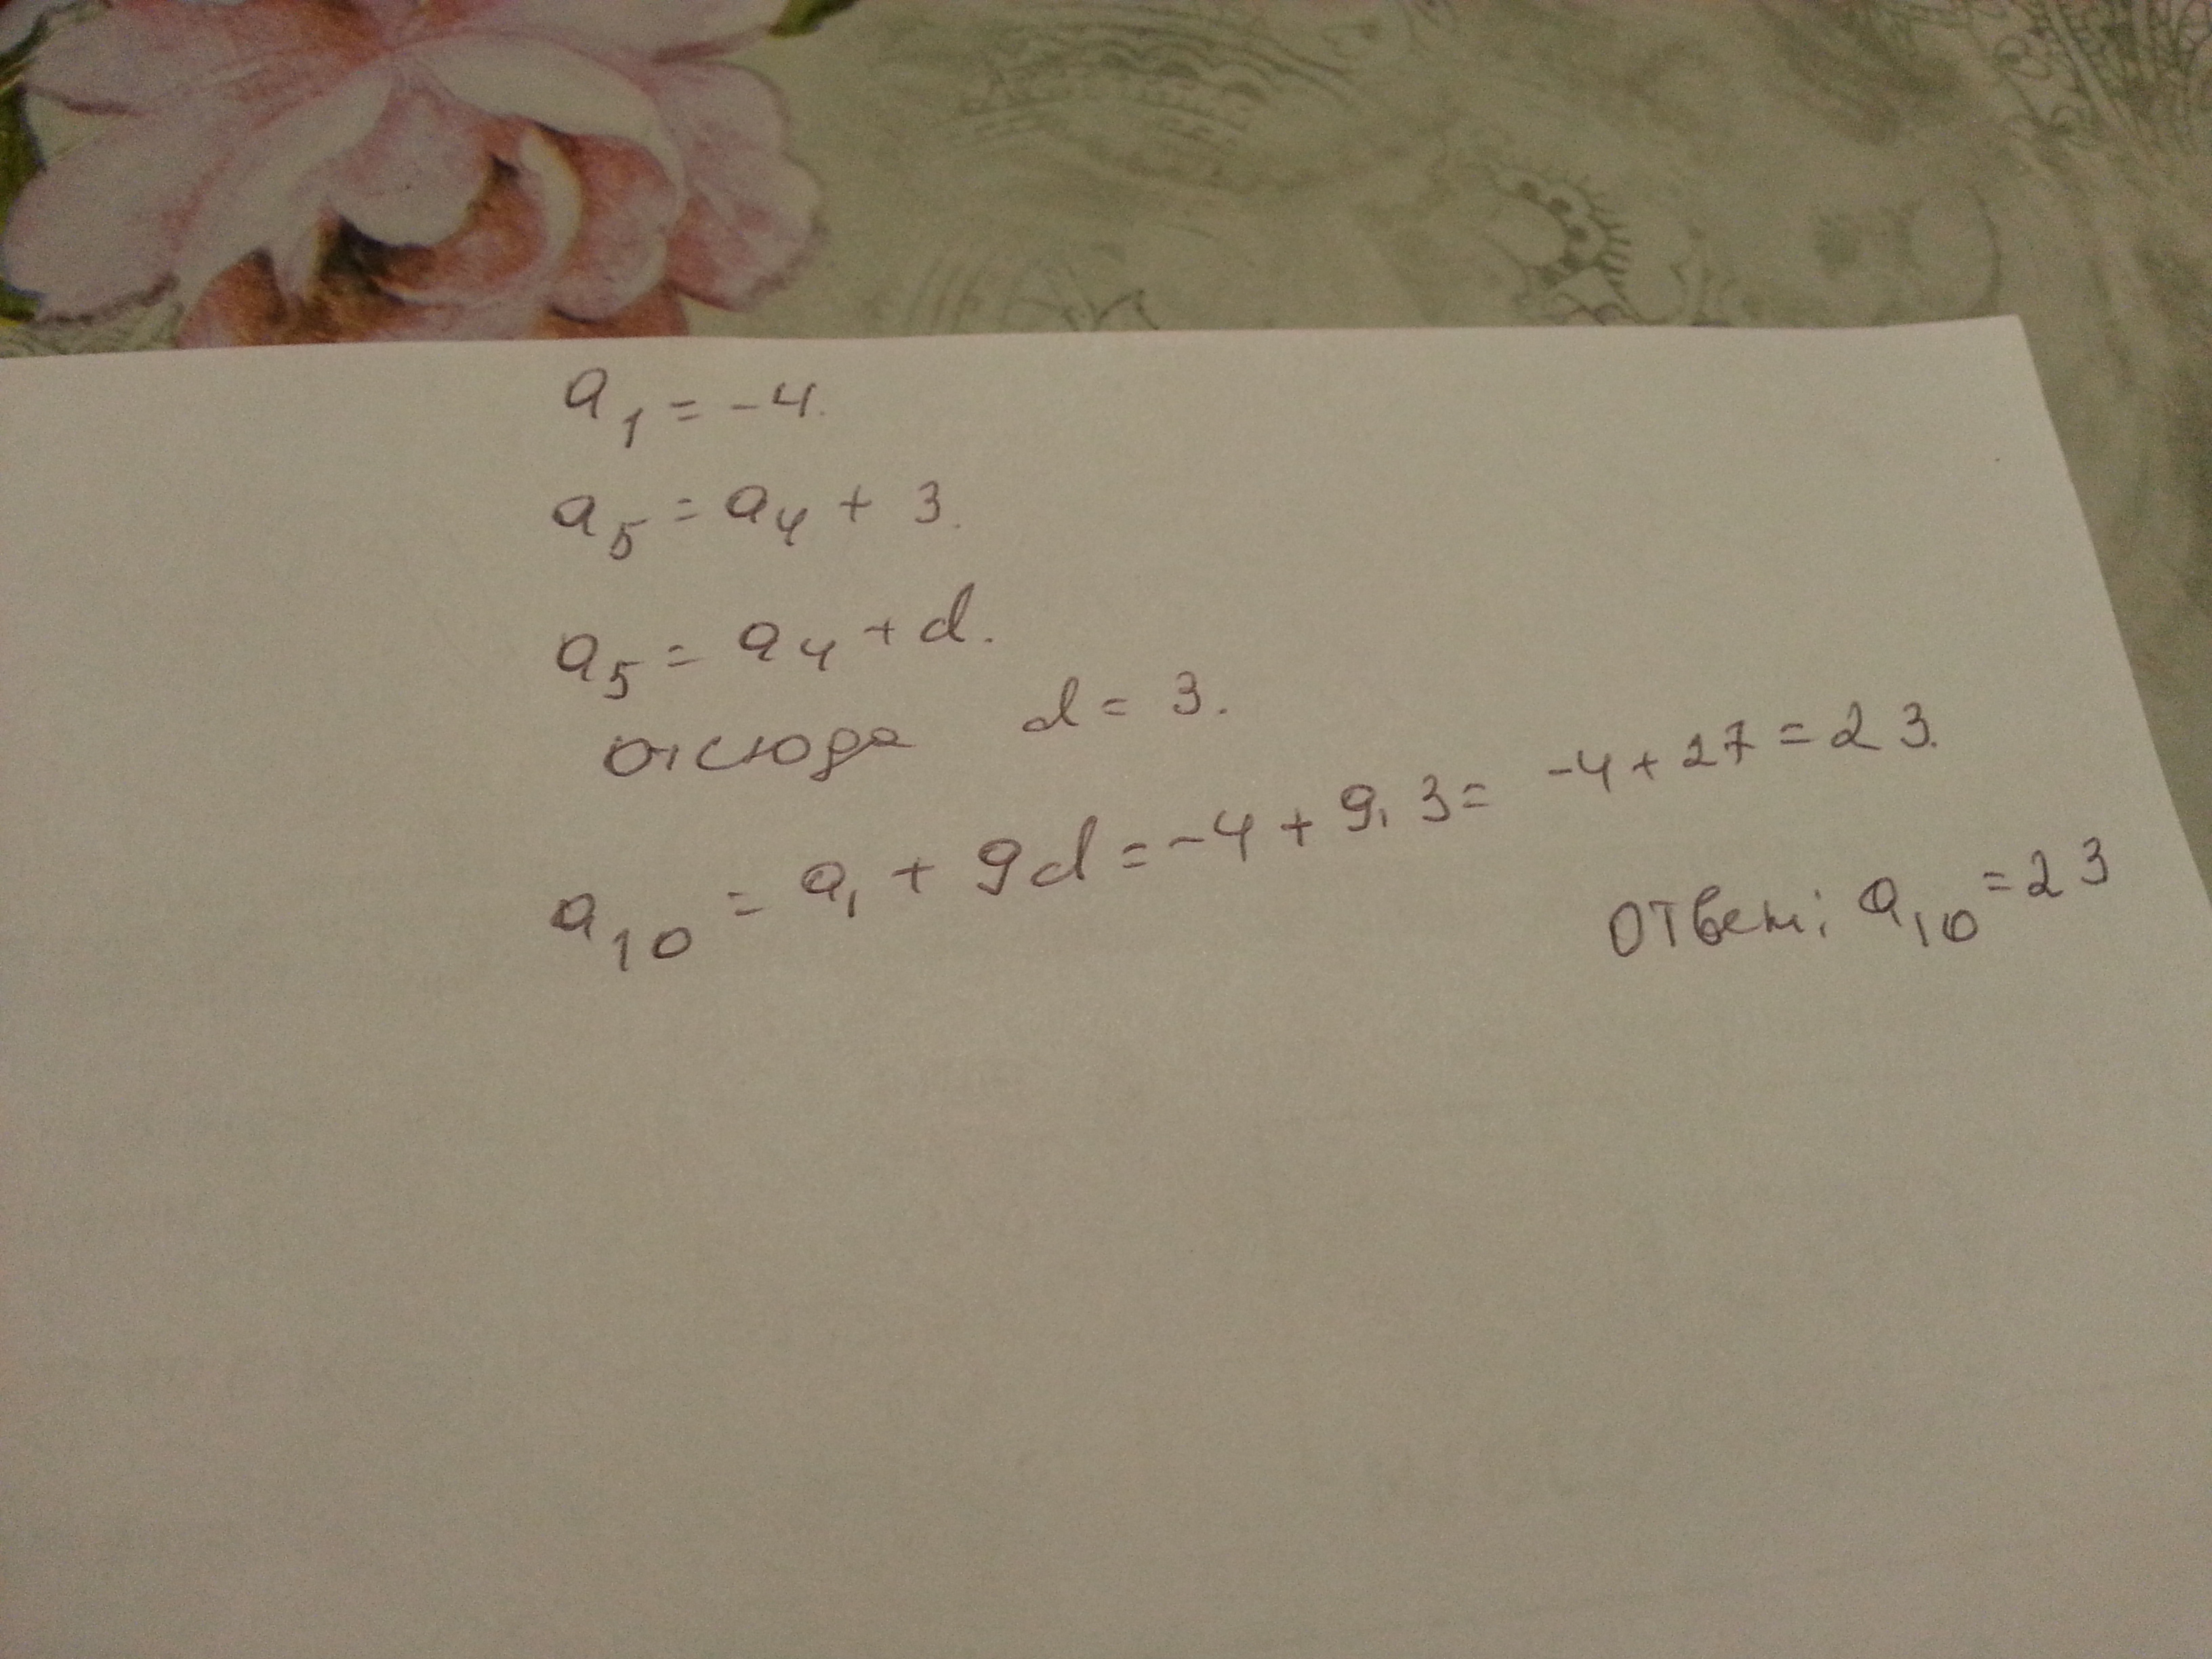 a₁ = -4.
a₅ = a₄ + 3.
a₅ = a₄ + d.
отсюда d = 3.
a₁₀ = a₁ + 9d = -4 + 9.3 = -4 + 27 = 23.
Ответ: a₁₀ = 23